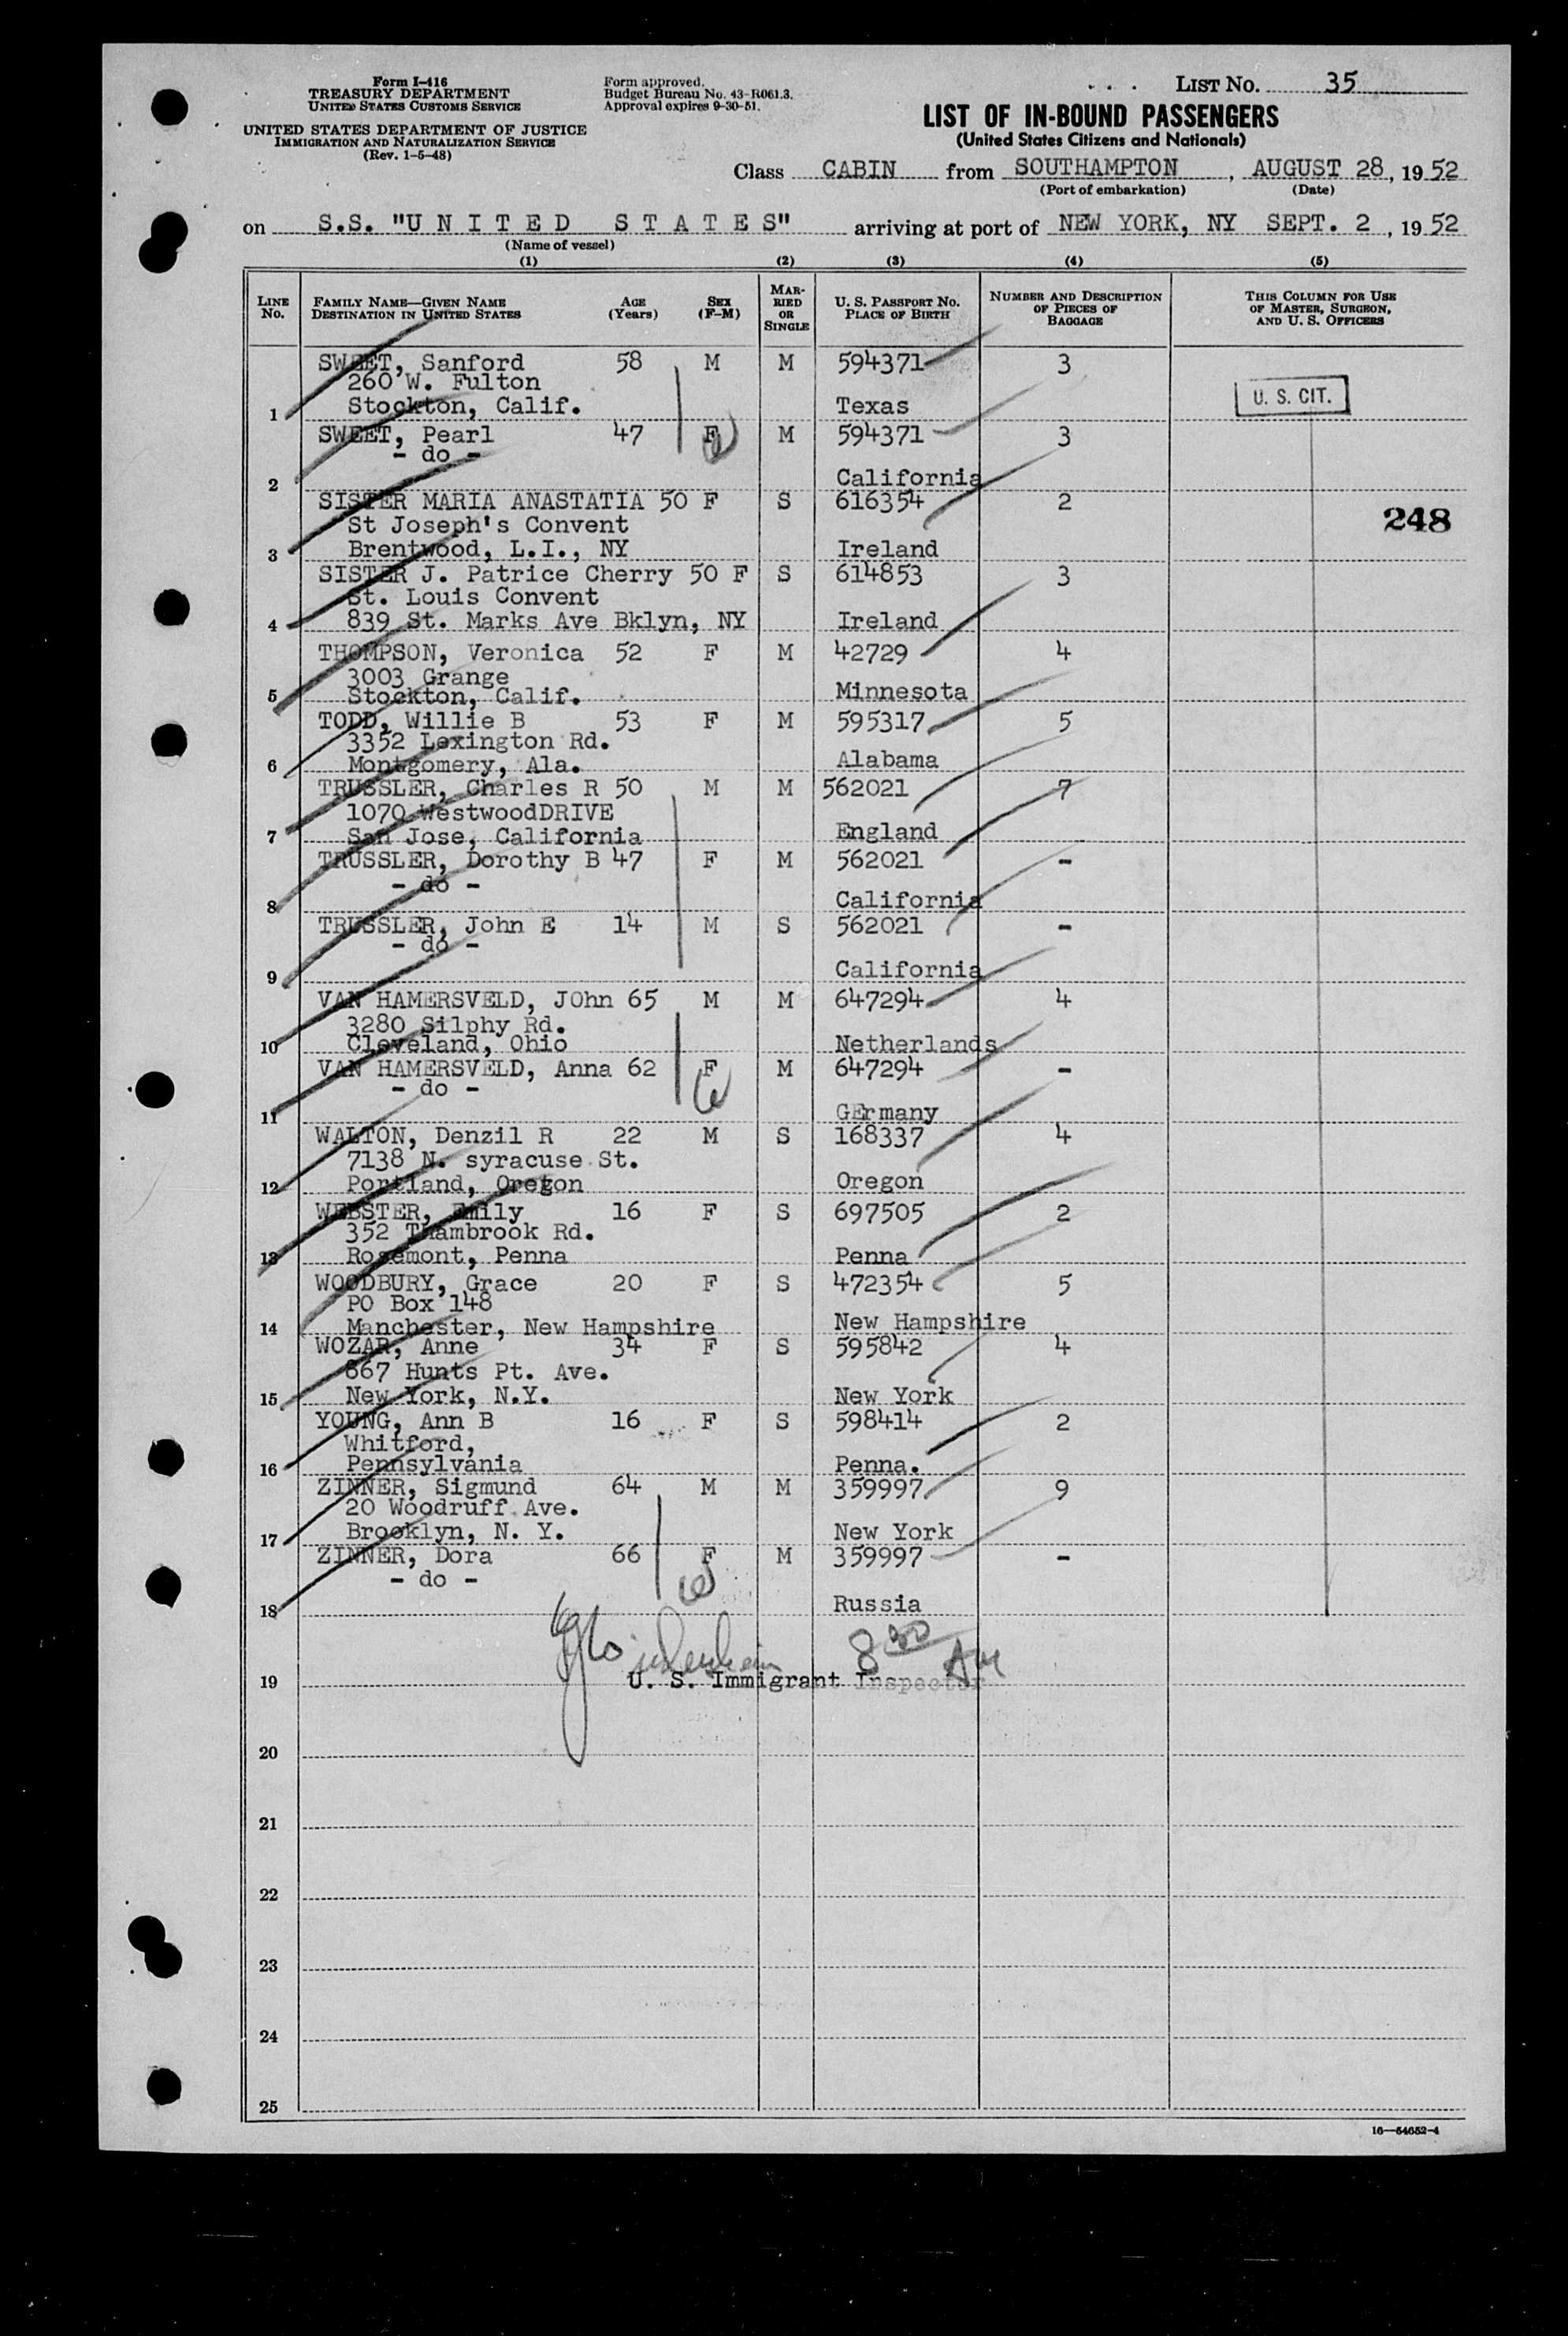 Form I-416
TREASURY DEPARTMENT
UNITED STATES CUSTOMS SERVICE
UNITED STATES DEPARTMENT OF JUSTICE
IMMIGRATION AND NATURALIZATION SERVICE
(Rev. 1-5-48)
Form approved.
Budget Bureau No. 43-R061.3.
Approval expires 9-30-51.
LIST NO. 35
LIST OF IN-BOUND PASSENGERS
(United States Citizens and Nationals)
Class CABIN from SOUTHAMPTON, AUGUST 28, 1952
(Port of embarkation) (Date)
on S.S. "U N I T E D S T A T E S" arriving at port of NEW YORK, NY SEPT. 2, 1952
(Name of vessel)
(1) (2) (3) (4) (5)
LINE NO. FAMILY NAME—GIVEN NAME DESTINATION IN UNITED STATES AGE (Years) SEX (F-M) MARRIED OR SINGLE U. S. PASSPORT NO. PLACE OF BIRTH NUMBER AND DESCRIPTION OF PIECES OF BAGGAGE THIS COLUMN FOR USE OF MASTER, SURGEON, AND U. S. OFFICERS
SWEET, Sanford 58 M M 594371 3
260 W. Fulton
U. S. CIT.
1 Stockton, Calif. Texas
SWEET, Pearl 47 F M 594371 3
- do -
2 California
SISTER MARIA ANASTATIA 50 F S 616354 2
248
St Joseph's Convent
3 Brentwood, L.I., NY Ireland
SISTER J. Patrice Cherry 50 F S 614853 3
St. Louis Convent
4 839 St. Marks Ave Bklyn, NY Ireland
THOMPSON, Veronica 52 F M 42729 4
3003 Grange
5 Stockton, Calif. Minnesota
TODD, Willie B 53 F M 595317 5
3352 Lexington Rd.
6 Montgomery, Ala. Alabama
TRUSSLER, Charles R 50 M M 562021 7
1070 WestwoodDRIVE
7 San Jose, California England
TRUSSLER, Dorothy B 47 F M 562021 -
- do -
8 California
TRUSSLER, John E 14 M S 562021 -
- do -
9 California
VAN HAMERSVELD, JOhn 65 M M 647294 4
3280 Silphy Rd.
10 Cleveland, Ohio Netherlands
VAN HAMERSVELD, Anna 62 F M 647294 -
- do -
11 GErmany
WALTON, Denzil R 22 M S 168337 4
7138 N. syracuse St.
12 Portland, Oregon Oregon
WEBSTER, Emily 16 F S 697505 2
352 Thambrook Rd.
13 Rosemont, Penna Penna
WOODBURY, Grace 20 F S 472354 5
PO Box 148
14 Manchester, New Hampshire New Hampshire
WOZAR, Anne 34 F S 595842 4
867 Hunts Pt. Ave.
15 New York, N.Y. New York
YOUNG, Ann B 16 F S 598414 2
Whitford,
16 Pennsylvania Penna.
ZINNER, Sigmund 64 M M 359997 9
20 Woodruff Ave.
17 Brooklyn, N. Y. New York
ZINNER, Dora 66 F M 359997 -
- do -
18 Russia
8 30 AM
19 U. S. Immigrant Inspector
20
21
22
23
24
25
16—54652-4